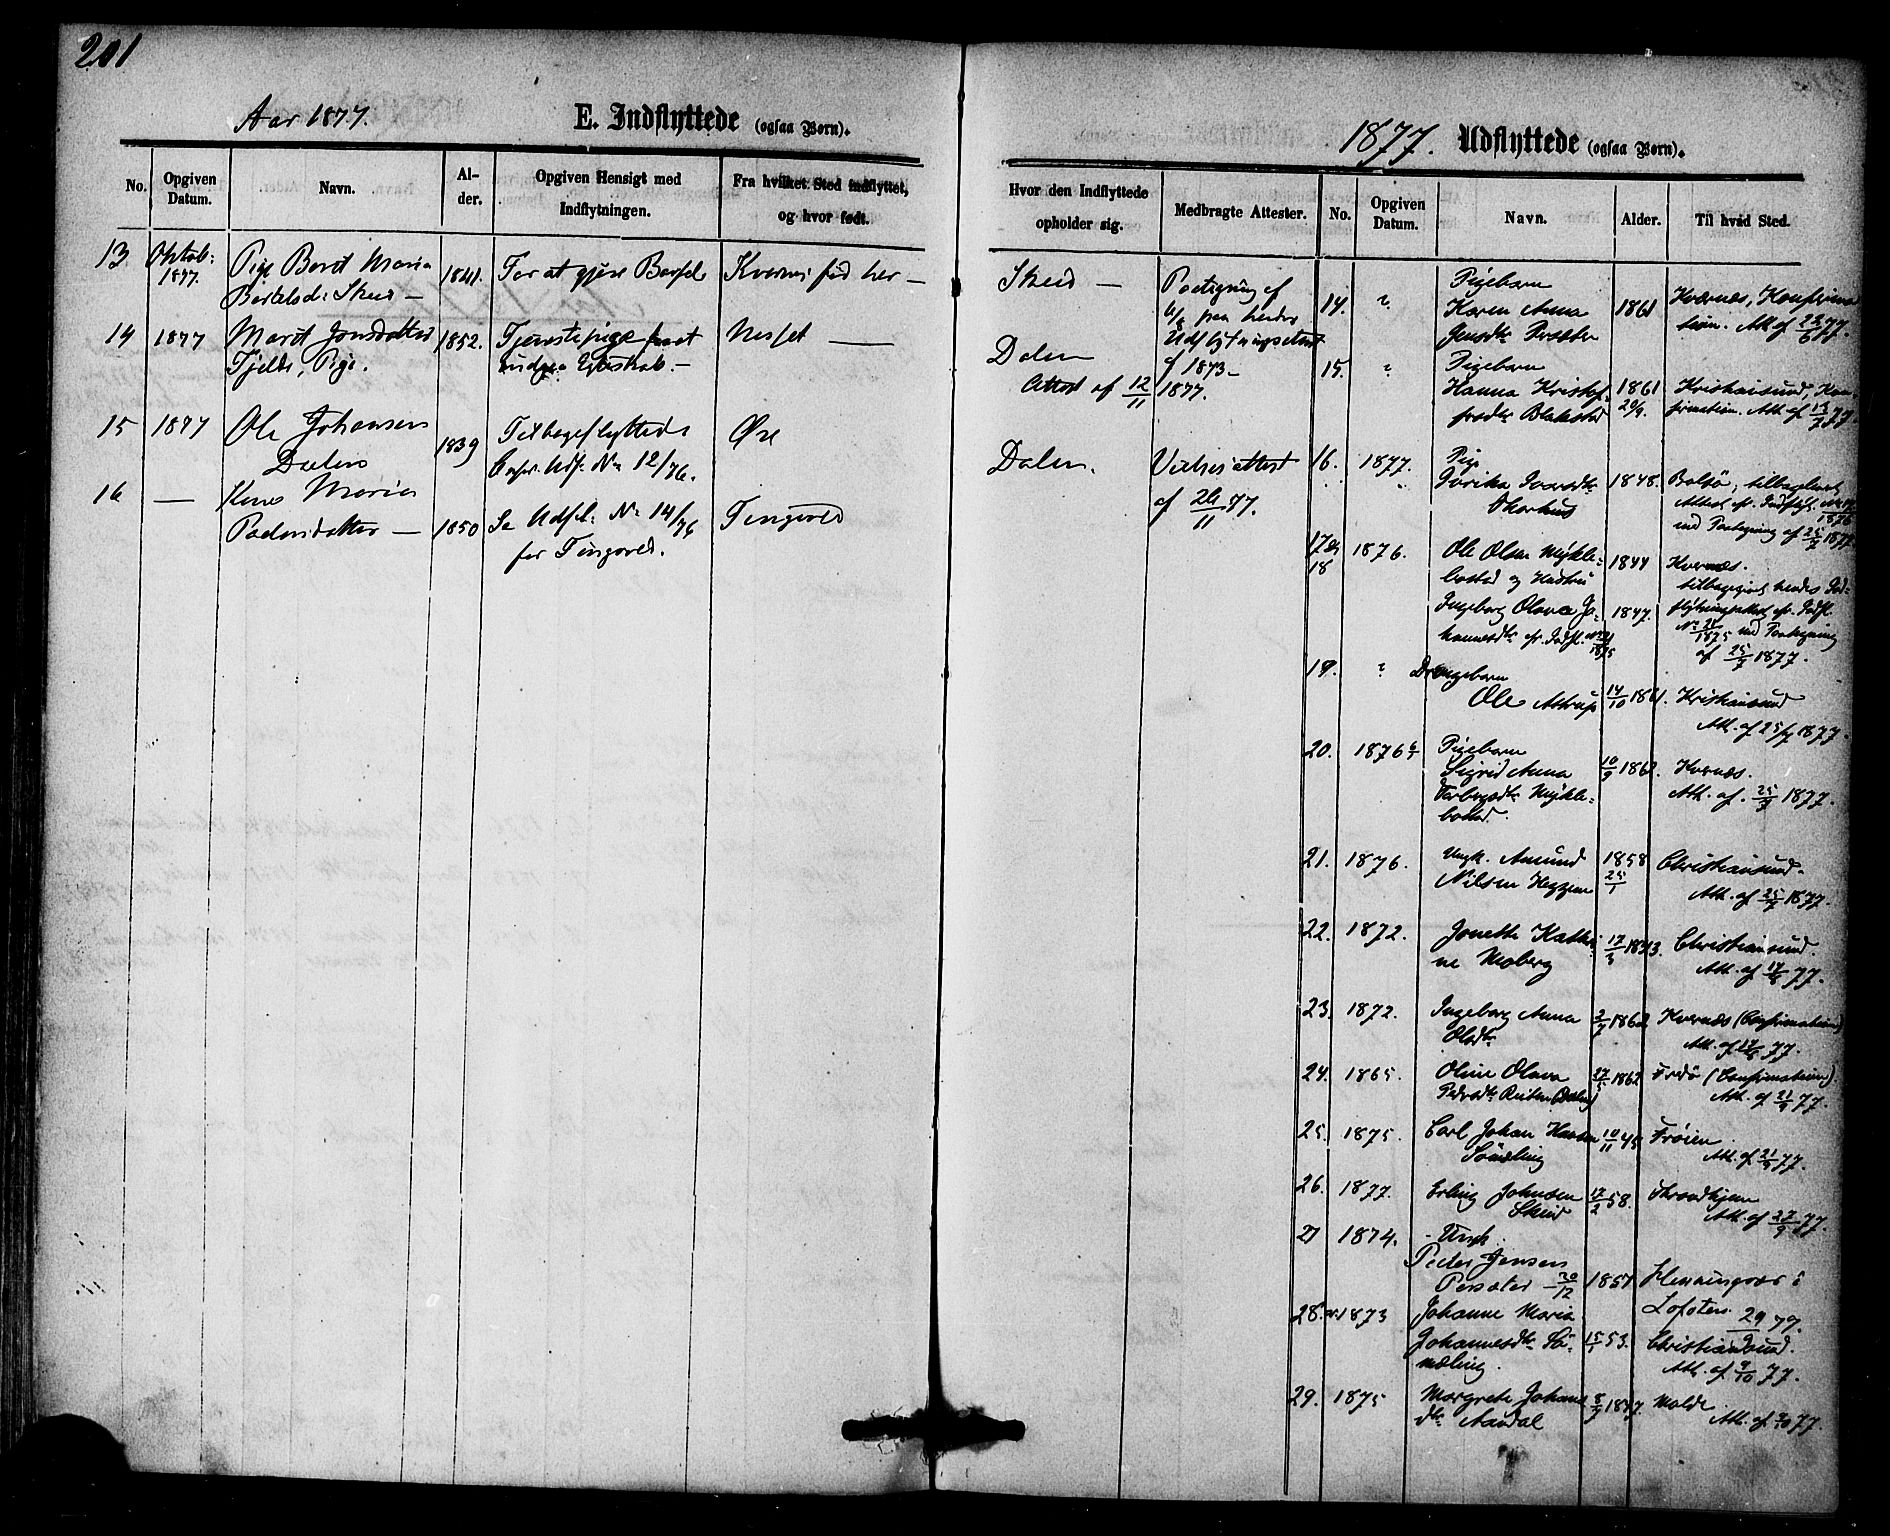 201
Aar 1877.
E. Indflyttede (ogsaa Børn).
No.
Opgiven Datum.
Navn.
Al-
der.
Opgiven Hensigt med
Indflytningen.
Fra hvilket Sted indflyttet,
og hvor født.
Hvor den Indflyttede
opholder sig.
Medbragte Attester.
13 Optob: 1877. Pige Berit Maria 1841. For at gjøre Barsel Kvernes fød her — Skeid — Paategning af
Bertelsd: Skeid — paa hendes
Udflytningsattest
14 1877 Marit Jonsdatter 1852. Tjenestepige Nesset — Dalen f 1873 –
Fjelde, Pige. Attest af 12/11 1877.
15 1877 Ole Johansen 1839 Tilbageflyttede Øre Dalen. Vielsesattest
Dalen Udf. No 12/76. af 26/11 77.
16 — Kone Maria
Pedersdatter — 1850 Se Udfl: No 14/76 Tingvold
for Tingvold.
1877. Udflyttede (ogsaa Børn).
No.
Opgiven Datum.
Navn.
Alder.
Til hvad Sted.
14. ? Pigebarn
Karen Anna 1861 Kvernæs, Konfirma-
Jensdtr Persæter tion. Att. af 22/6 77.
15. ? Pigebarn
Hanna Kristof- 1861 Kristiansund, Kon-
fersdtr Blakstad 20/9. firmation. Att. af 13/7 77.
16. 1877. Pige
1848. Bolsø, tilbagelevt
Attest
1876
med Paategning af 25/7 1877.
17 & 1876. Ole Olsen Mykle- 1844 Kvernæs.
18 bostad og Hustru tilbagegivet hendes Ind-
Ingeborg Olava Jo- 1847. flytningsattest efr. Indfl.
hannesdtr efr. Indfl. No 21/1875 No 21/1875 med Paategning
af 25/7 1877.
19. ? Drengebarn
Ole Astrup 14/10 1861. Kristiansund
Att. af 25/7 1877.
20. 1876 Pigebarn
Sigrid Anna 10/9 1862. Kvernæs.
Mykle- Att. af. 25/7 1877.
bostad.
21. 1876. Ungk. Amund 1858 Christiansund.
Nilsen Heggem 25/1 Att. af 25/7 1877.
22. 1872. Jonette Kathri- 17/3 1843. Christiansund.
ne Moberg Att. af 17/8 77.
23. 1872. Ingeborg Anna 2/7 1862 Kvernæs (Confirmation)
Olsdtr Att. af 17/8 77.
24. 1865. Oline Olava 27/5 1862 Fredø (Confirmation).
Pedersdtr Reiten (Dalen) Att. af 21/9 77.
25. 1875. Carl Johan Hansen 10/11 45 Frøien.
Att. af 21/9 77.
26. 1877. Erling Johnsen 17/2 58. Throndhjem
Skeid Att. af 27/9 77.
27 1874. - Ungk.
Peder Jensen
Persæter – 20/12 1857. Henningsvær i
28. 1873 Johanne Maria Lofoten. 29 77.
Johannesdtr Sø- 15/1 53. Christiansund.
næling. Att. af 9/10 77.
29. 1875 Margrete Johans 8/7 1847. Molde
dtr Aandal Att. af 9/10 77.